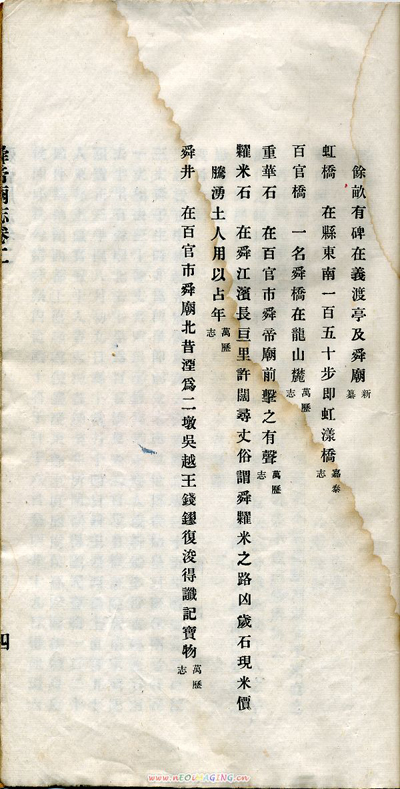 餘畝有碑在義渡亭及舜廟新纂
虹橋 在縣東南一百五十步即虹漾橋嘉泰志
百官橋 一名舜橋在龍山麓萬歷志
重華石 在百官市舜帝廟前擊之有聲萬歷志
糶米石 在舜江濱長亘里許闊尋丈俗謂舜糶米之路凶歲石現米價
騰湧土人用以占年萬歷志
舜井 在百官市舜廟北昔湮爲二墩吳越王錢鏐復浚得讖記寶物萬歷志
四
www.nEOIMAGING.cn